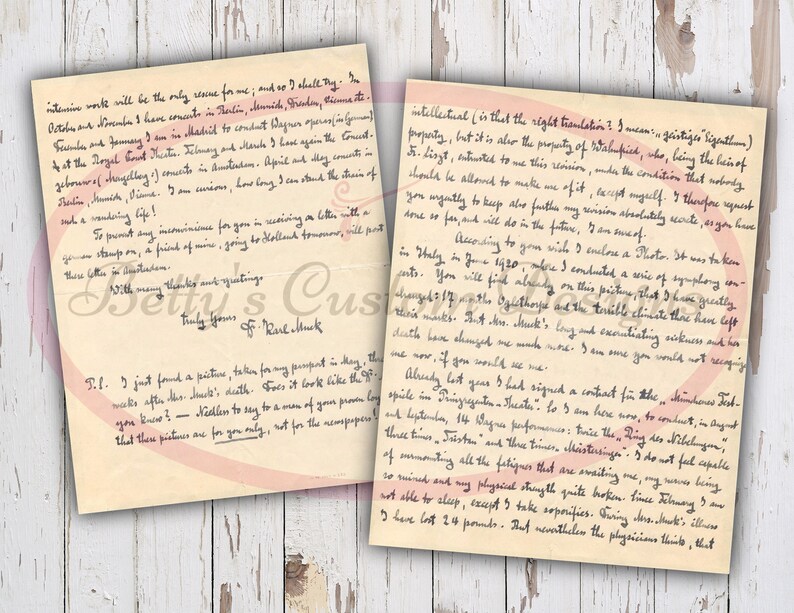 intensive work will be the only rescue for me; and so I shall try. In
October and November I have concerts in Berlin, Munich, Dresden, Vienna etc.
December and January I am in Madrid to conduct Wagner operas (in German)
at the Royal Court Theatre. February and March I have again the Concert-
gebouw-(Mengelberg-) concerts in Amsterdam. April and May concerts in
Berlin, Munich, Vienna. I am curious, how long I can stand the strain of
such a wandering life!
To prevent any inconvinience for you in receiving a letter with a
german stamp on, a friend of mine, going to Holland tomorrow, will post
these letter in Amsterdam.
With many thanks and greetings
truly yours
Dr. Karl Muck
P.S. I just found a picture, taken for my passport in May, three
weeks after Mrs. Muck's death. Does it look like the
you knew? — Needless to say to a man of your proven
that these pictures are for you only, not for the newspapers!
intellectual (is that the right translation? I mean: „geistiges" Eigenthum)
property, but it is also the property of Wahnfried, who, being the heir of
Fr. Liszt, entrusted to me this revision, under the condition that nobody
should be allowed to make use of it, except myself. I therefore request
you urgently to keep also further my revision absolutely secrete, as you have
done so far, and will do in the future, I am sure of.
According to your wish I enclose a Photo. It was taken
in Italy in June 1920, where I conducted a serie of symphony con-
certs. You will find already on this picture, that I have greatly
changed: 17 months Oglethorpe and the terrible climate there have left
their marks. But Mrs. Muck's long and excrutiating sickness and her
death have changed me much more. I am sure you would not recognize
me now, if you would see me.
Already last year I had signed a contract for the „Münchener Fest-
spiele im Prinzregenten-Theater. So I am here now, to conduct, in August
and September, 14 Wagner performances: twice the „Ring des Nibelungen",
three times „Tristan" and three times „Meistersinger. I do not feel capable
of surmounting all the fatigues that are awaiting me, my nerves being
so ruined and my physical strength quite broken. Since February I am
not able to sleep, except I take soporifics. During Mrs. Muck's illness
I have lost 24 pounds. But nevertheless the physicians think, that
Betty's Custom Designs